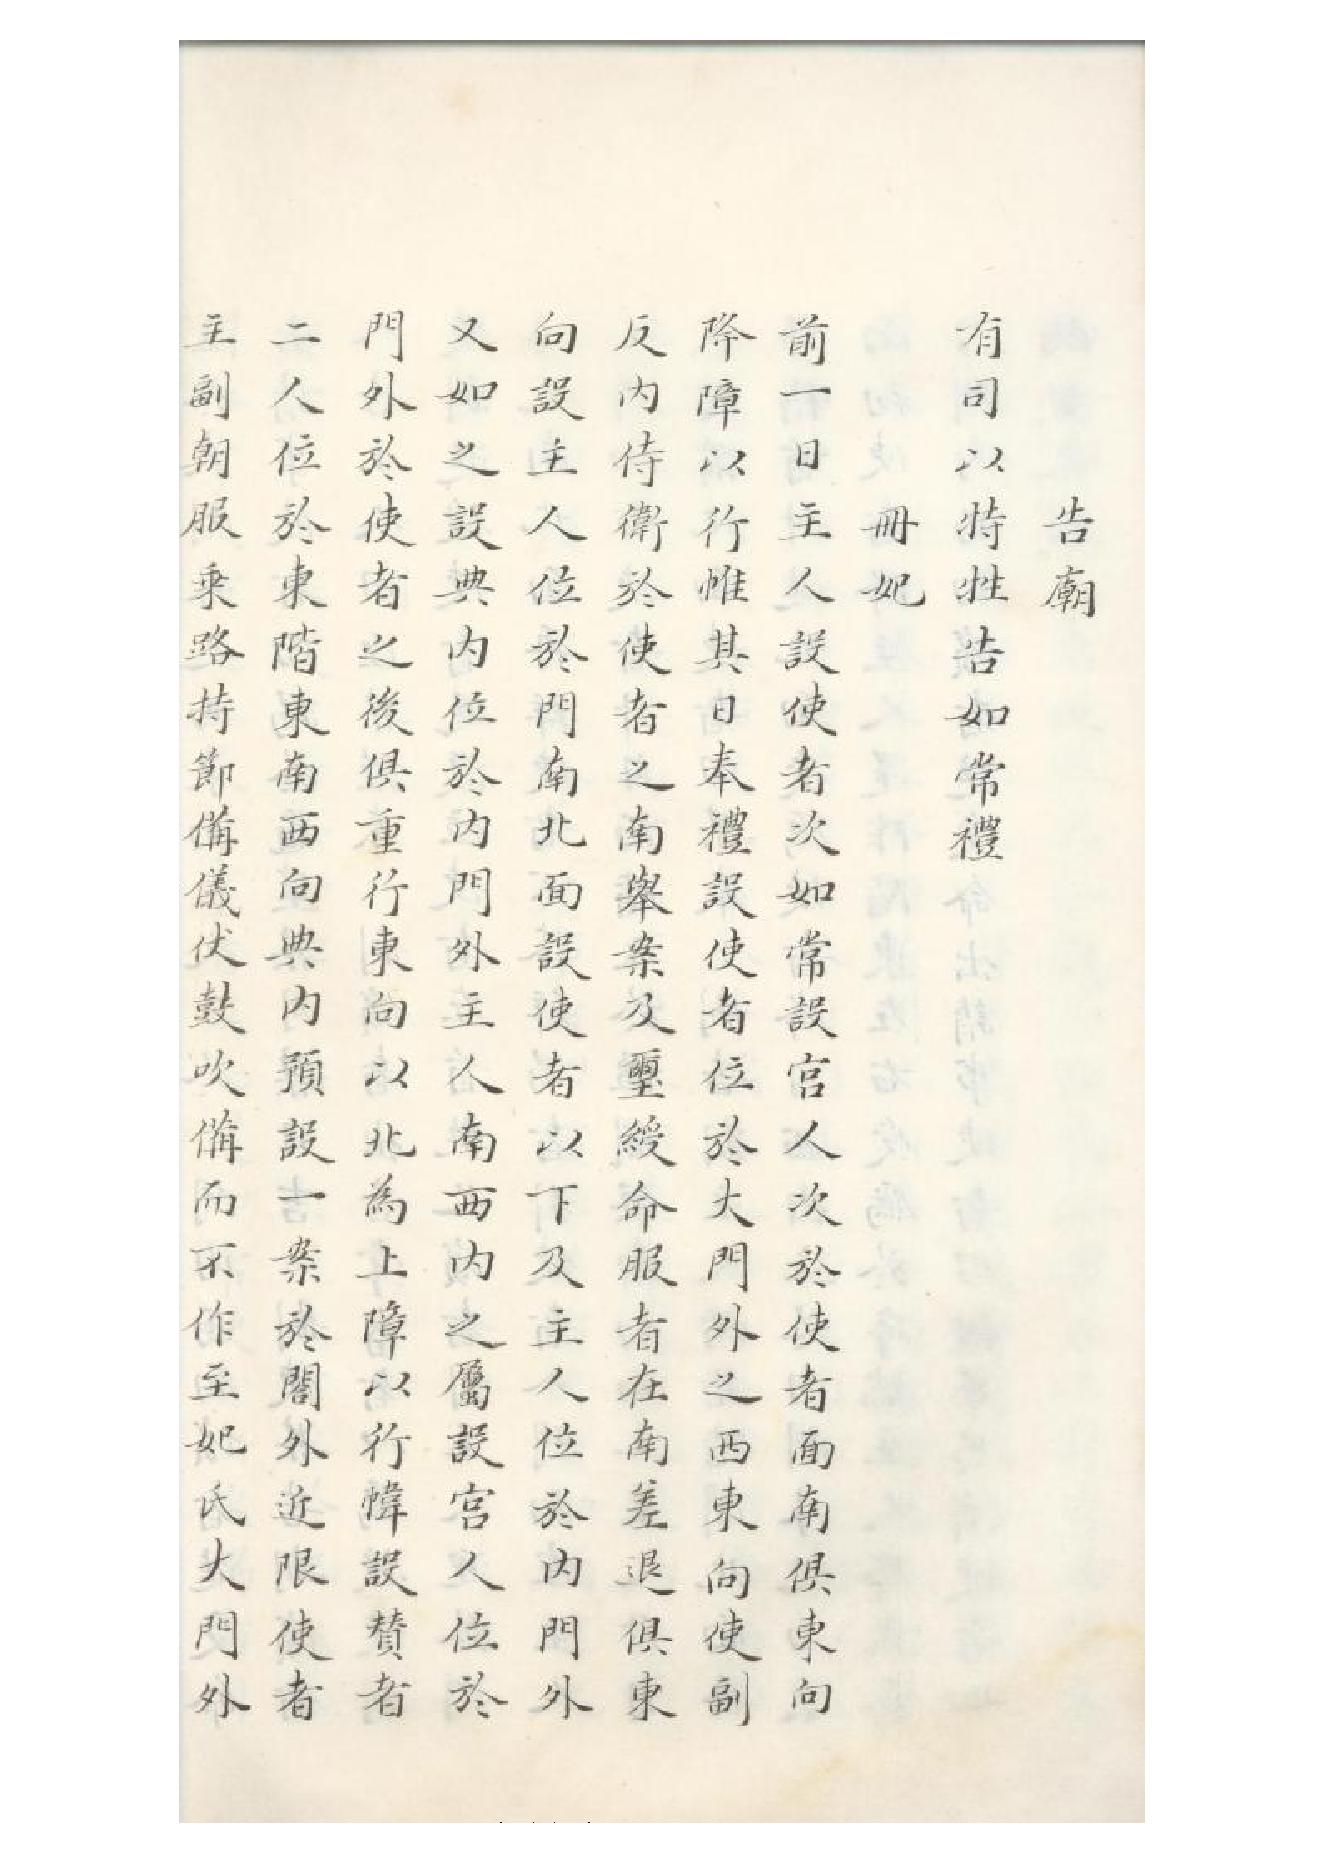 告廟
有司以特牲告如常禮
冊妃
前一日主人設使者次如常設宮人次於使者面南俱東向
降障以行帷其日奉禮設使者位於大門外之西東向使副
反内侍衛於使者之南舉案及璽綬命服者在南差退俱東
向設主人位於門南北面設使者以下及主人位於内門外
又如之設典内位於内門外主人南西内之屬設宮人位於
門外於使者之後俱重行東向以北為上障以行幃設贊者
二人位於東階東南西向典内預設一案於閤外近限使者
主副朝服乗路持節備儀伏鼓吹備而不作至妃氏大門外